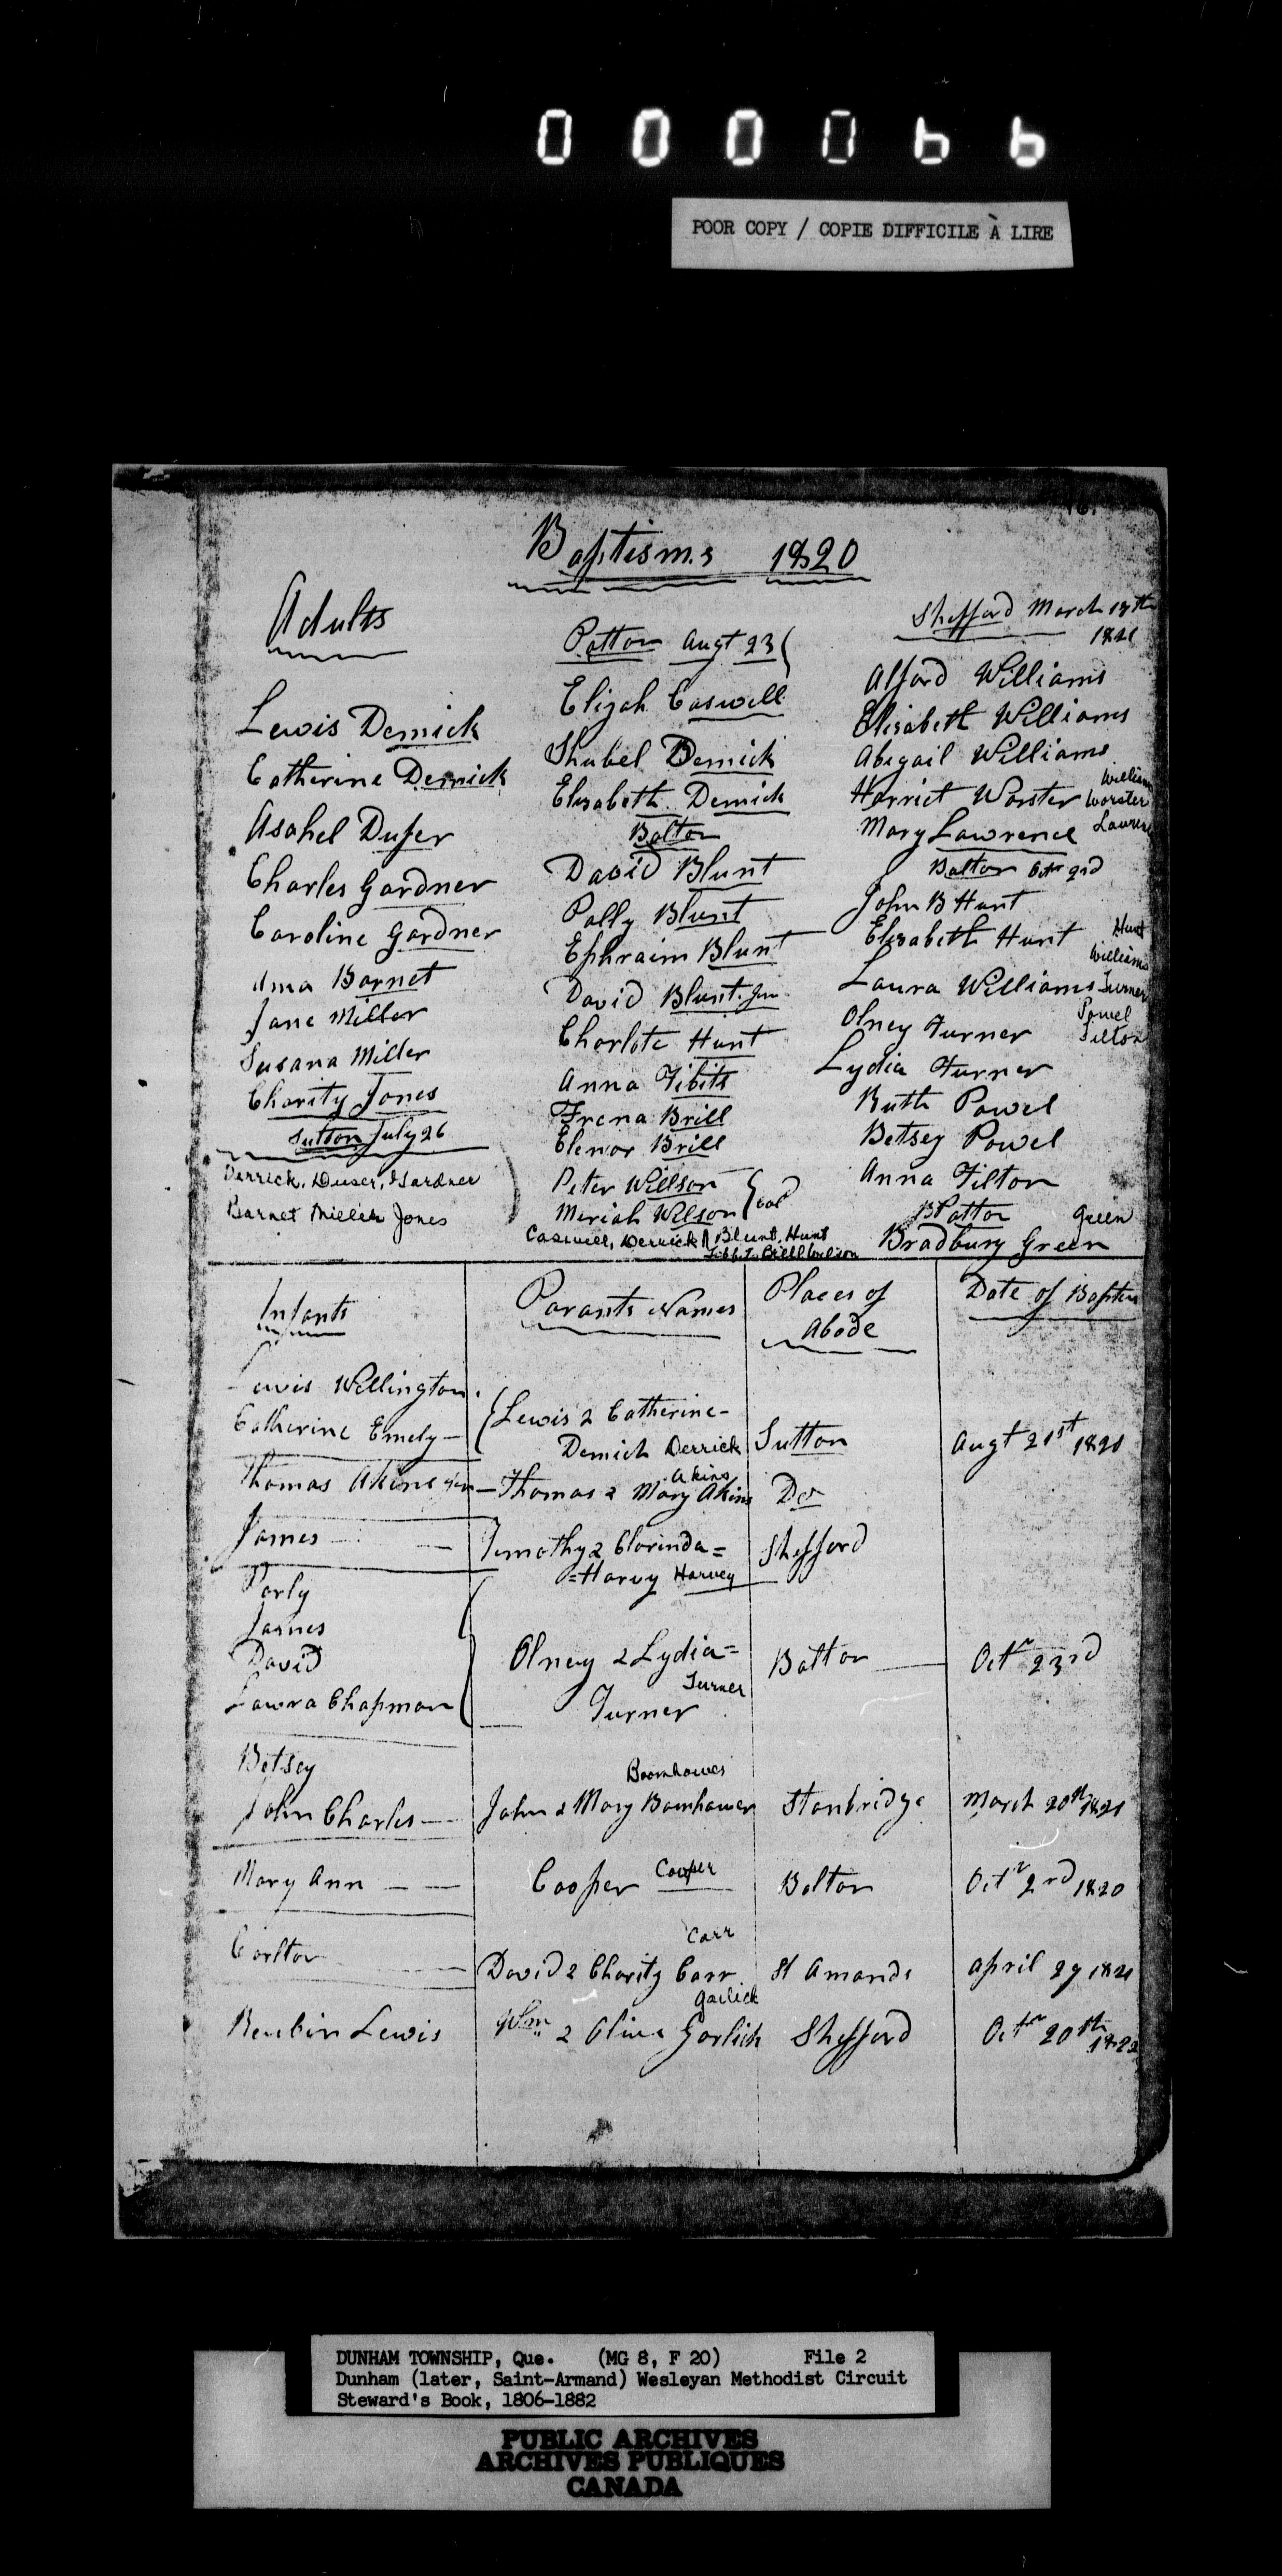 000066
POOR COPY / COPIE DIFFICILE À LIRE
Baptisms 1820
Adults
Lewis Demick
Catherine Demick
Asahel Duser
Charles Gardner
Caroline Gardner
Barnet
Jane Miller
Susana Miller
Charity Jones
Sutton July 26
Derrick, Duser, Gardner
Barnet Miller Jones
Potton Augt 23
Elijah Caswell
Shubel Demick
Elisabeth Demick
Bolton
David Blunt
Polly Blunt
Ephraim Blunt
David Blunt Jun
Charlote Hunt
Anna Tibits
Frena Brill
Elenor Brill
Peter Willson
Meriah Wilson
Caswell, Derrick Blunt, Hunt
Shefford March 13th
1821
Alford Williams
Elisabeth Williams
Abigail Williams
William
Harriet Worster Worster
Mary Lawrence
Bolton Octr 2rd
John B Hunt
Elisabeth Hunt Hunt
Williams
Laura Williams Turner
Powel
Olney Turner Tilton
Lydia Turner
Ruth Powel
Betsey Powel
Anna Tilton
Potton Green
Bradbury Green
Infants
Parants Names
Places of
Abode
Date of Baptism
Lewis Wellington
Catherine Emely
Lewis & Catherine
Demick Derrick
Sutton
Augt 21st 1820
Thomas Akins Jun
Akins
Thomas & Mary Akins
Do
James
Timothy & Clorinda =
= Harvy Harvey
Shefford
Parly
James
David
Lawra Chapman
Olney & Lydia =
Turner
Turner
Bolton
Octr 23rd
Betsey
John Charles
Boomhower
John & Mary Bomhower
Stanbridge
March 20th 1821
Mary Ann
Cooper Cooper
Bolton
Octr 2rd 1820
Carlton
Carr
David & Charity Carr
St Amands
April 29 1821
Reubin Lewis
Garlick
Wm & Olive Garlick
Shefford
Octr 20th
DUNHAM TOWNSHIP, Que. (MG 8, F 20) File 2
Dunham (later, Saint-Armand) Wesleyan Methodist Circuit
Steward's Book, 1806-1882
PUBLIC ARCHIVES
ARCHIVES PUBLIQUES
CANADA